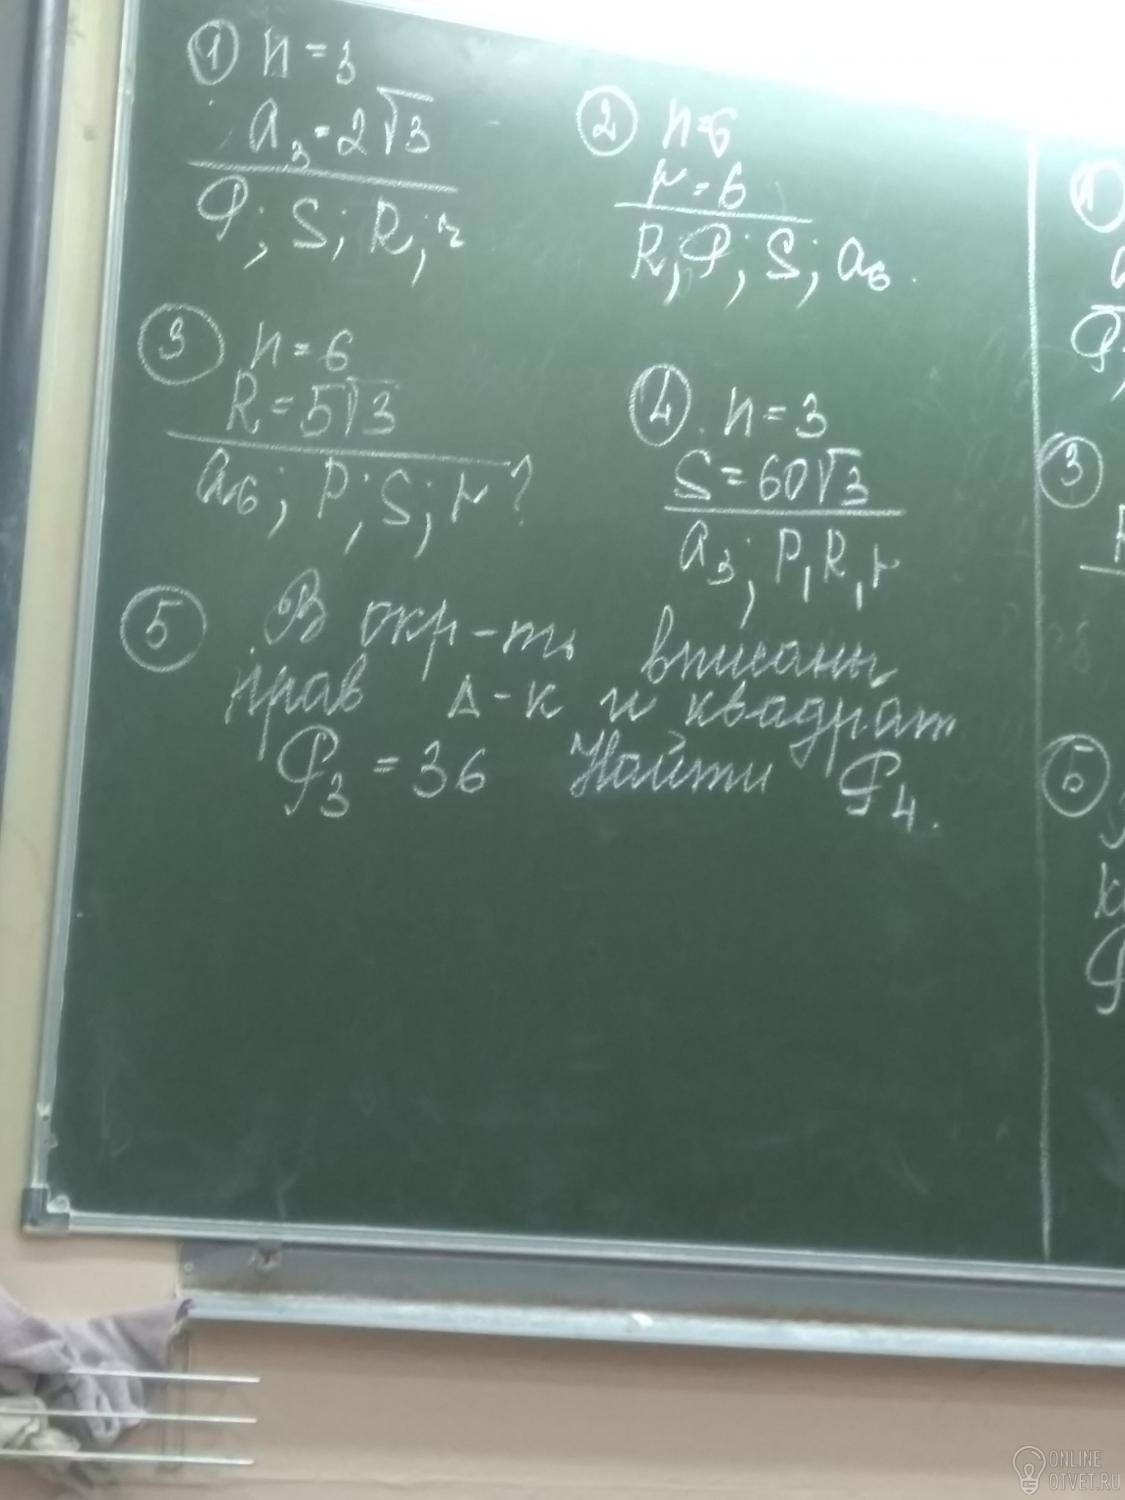 ① n = 3
a₃ = 2√3
P; S; R; r
② n=6
r = 6
R; P; S; a₆.
③ n = 6
R = 5√3
a₆; P; S; r?
④ n = 3
S = 60√3
a₃; P, R, r
⑤ В окр-ть вписаны
прав Δ-к и квадрат
P₃ = 36 Найти P₄.
①
a
P;
③
R
⑤
к
P
ONLINE
OTVET.RU